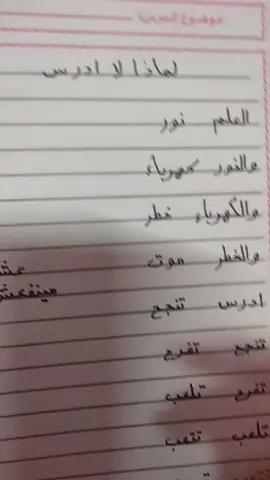 موضوع الدرس
لماذا لا ادرس
العلم نور
والنور كهرباء
والكهرباء خطر
والخطر موت
عشا
مينفعش
ادرس تنجح
تنجح تفرح
تفرح تلعب
تلعب تتعب
تتعب